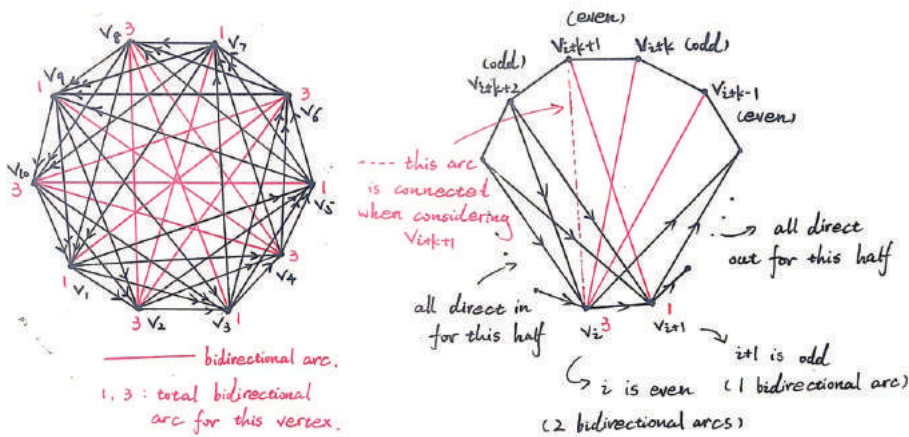 3
1
V8
V7
1
V9
3
V6
V10
3
1
V5
3
V4
1
V1
3
V2
V3
1
bidirectional arc.
1, 3 : total bidirectional
arc for this vertex.
(even)
Vi+k+1
Vi+k (odd)
(odd)
Vi+k+2
Vi+k-1
(even)
---- this arc
is connected
when considering
Vi+k+1
all direct
out for this half
all direct in
for this half
Vi
3
1
Vi+1
i+1 is odd
(1 bidirectional arc)
i is even
(2 bidirectional arcs)